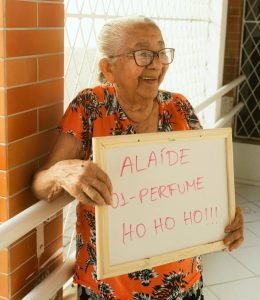 ALAÍDE
01-PERFUME
HO HO HO!!!